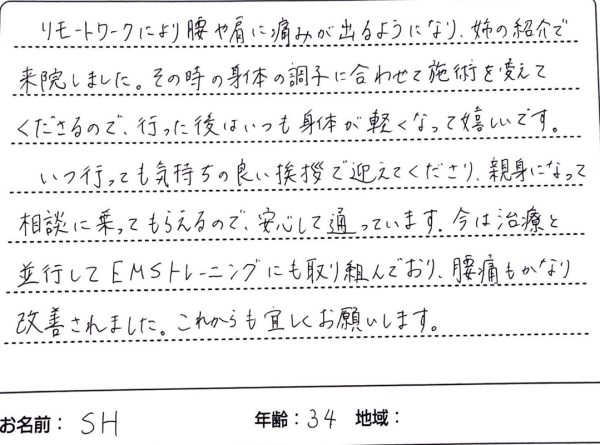 リモートワークにより腰や肩に痛みが出るようになり、姉の紹介で
来院しました。その時の身体の調子に合わせて施術を変えて
くださるので、行った後はいつも身体が軽くなって嬉しいです。
いつ行っても気持ちの良い挨拶で迎えてくださり、親身になって
相談に乗ってもらえるので、安心して通っています。今は治療と
並行してEMSトレーニングにも取り組んでおり、腰痛もかなり
改善されました。これからも宜しくお願いします。
お名前：SH 年齢：34 地域：